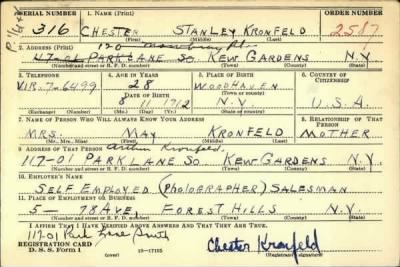 SERIAL NUMBER 1. NAME (Print) ORDER NUMBER
316 CHESTER STANLEY KRONFELD 2587
(First) (Middle) (Last)
2. ADDRESS (Print)
120
PARK LANE SO. KEW GARDENS N.Y.
(Number and street or R. F. D. number) (Town) (County) (State)
3. TELEPHONE 4. AGE IN YEARS 5. PLACE OF BIRTH 6. COUNTRY OF CITIZENSHIP
VIR. 7-6499 28 WOODHAVEN
DATE OF BIRTH (Town or county)
8 11 1912 N.Y. U.S.A.
(Exchange) (Number) (Mo.) (Day) (Yr.) (State or country)
7. NAME OF PERSON WHO WILL ALWAYS KNOW YOUR ADDRESS 8. RELATIONSHIP OF THAT PERSON
MRS. MAY KRONFELD MOTHER
(Mr., Mrs., Miss) (First) (Middle) (Last)
9. ADDRESS OF THAT PERSON Arthur Kronfeld
117-01 PARK LANE SO. KEW GARDENS N.Y.
(Number and street or R. F. D. number) (Town) (County) (State)
10. EMPLOYER'S NAME
SELF EMPLOYED (PHOTOGRAPHER) SALESMAN
11. PLACE OF EMPLOYMENT OR BUSINESS
5- 78 AVE, FOREST HILLS N.Y.
(Number and street or R. F. D. number) (Town) (County) (State)
I AFFIRM THAT I HAVE VERIFIED ABOVE ANSWERS AND THAT THEY ARE TRUE.
117-01 Park Lane South
REGISTRATION CARD
D. S. S. Form 1 (over) 16-17105 Chester Kronfeld
(Registrant's signature)